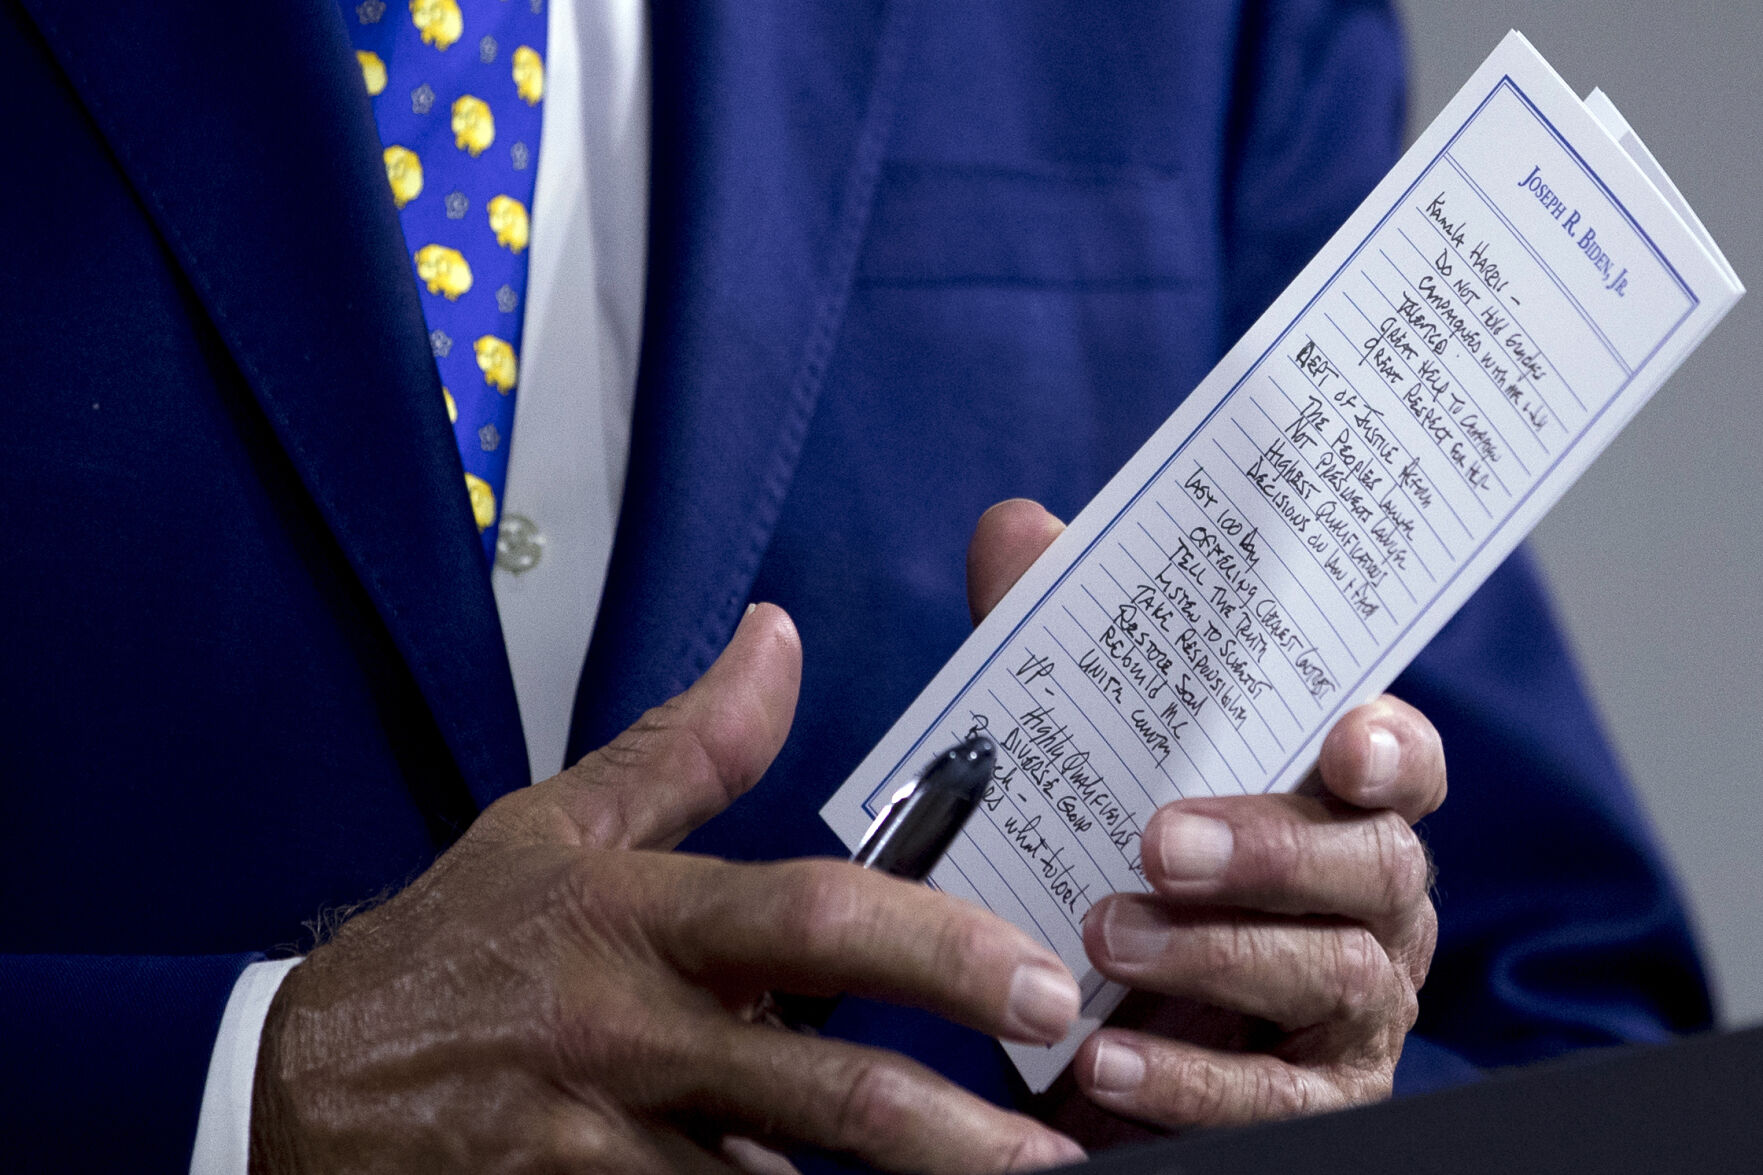 JOSEPH R. BIDEN, JR.
KAMALA HARRIS -
DO NOT HOLD GRUDGES
CAMPAIGNED WITH ME &
TALENTED.
GREAT HELP TO CAMPAIGN
GREAT RESPECT FOR HER
DEPT OF JUSTICE
THE PEOPLES LAWYER
NOT PRESIDENTS LAWYER
HIGHEST QUALIFICATIONS
DECISIONS ON LAW + FACT
LAST 100 DAY
OFFERING CLEAREST CONTRAST
TELL THE TRUTH
LISTEN TO SCIENTIST
TAKE RESPONSIBILITY
RESTORE SOUL
REBUILD MC
UNITE COUNTRY
VP -
Highly Qualified
DIVERSE GROUP
what to look